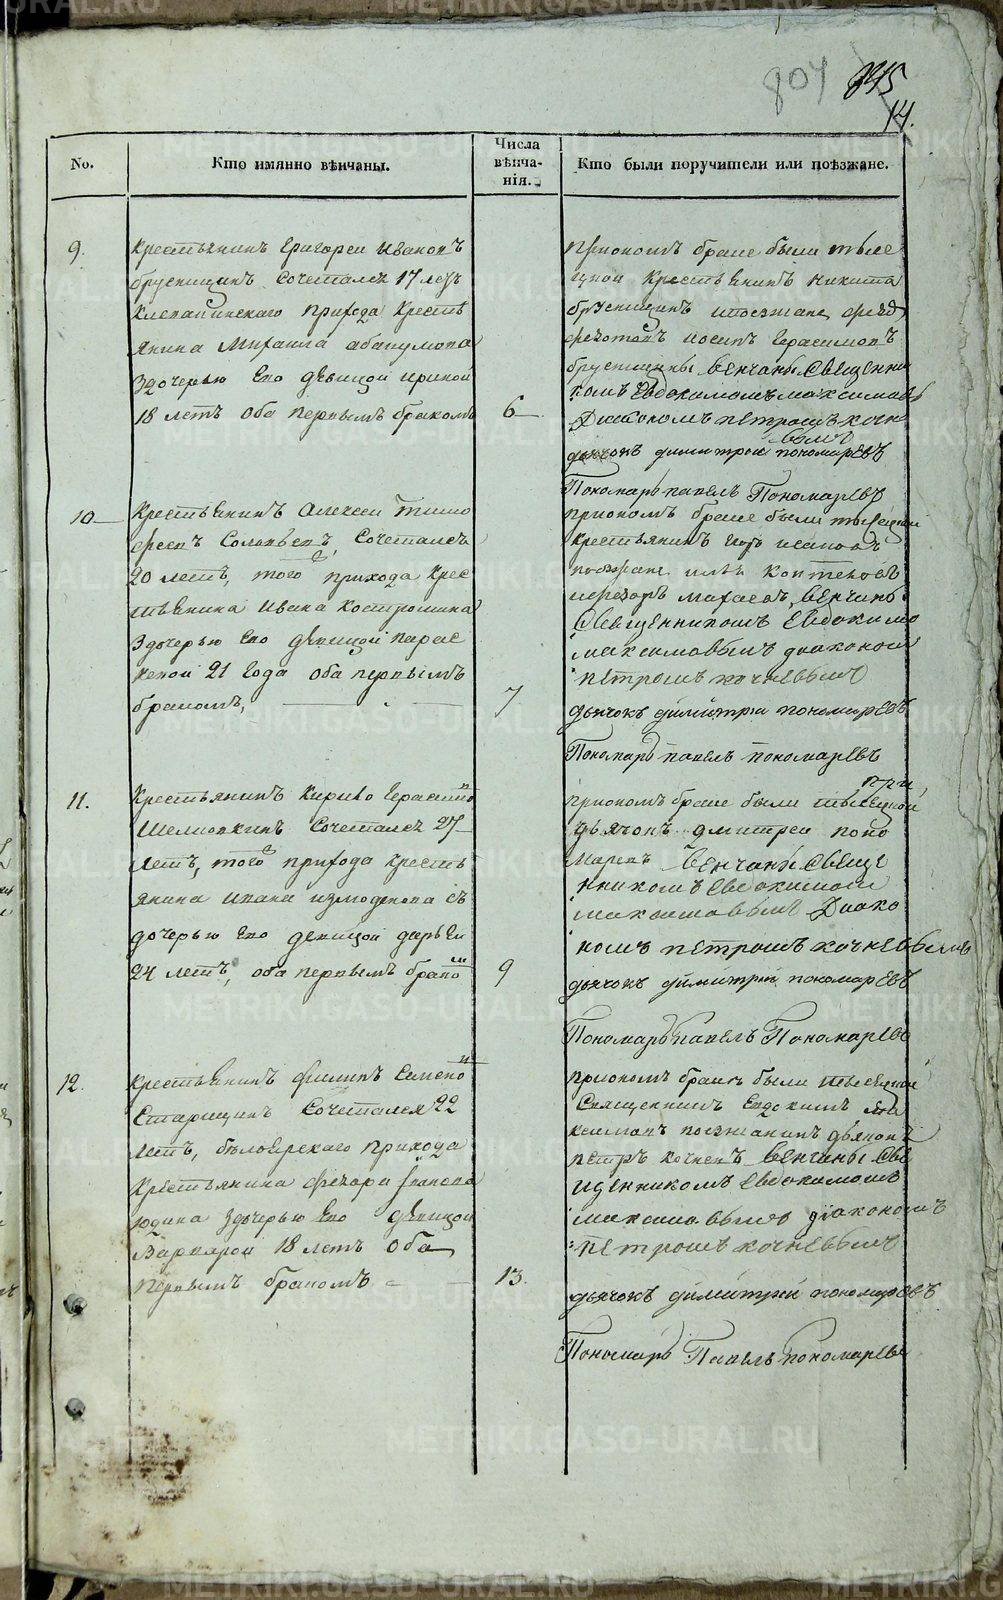 804 845
14.
No.
Кто имянно вѣнчаны.
Числа
вѣнча-
нія.
Кто были поручители или поѣзжане.
9.
Крестьянинъ Григореи Ивановъ
брусницынъ Сочетался 17 летъ
Клевакинскаго прихода Кресть
янина Михаила абакумова
здочерью Ево девицой ириной
18 летъ оба первымъ бракомъ
6
приономъ браке были тысе
цкой Крестьянинъ Никита
брусницынъ ипоезжане
иосипъ Герасимовъ
брусницыны венчаны Священни
комъ Евдокимомъ максимовы
Диакономъ петромъ кочне
вымъ
дьячокъ димитрий пономаревъ
Пономарь павелъ Пономаревъ
10
Крестьянинъ Алексеи тимо
феевъ Соловьевъ, Сочетался
20 летъ, того прихода Крес
тьянина Ивана Костромина
здочерью Ево девицой парас
кевой 21 года оба первымъ
бракомъ,
7
приономъ браке были тысецкой
крестьянинъ исаковъ
поезжане илья коптеловъ
венчаны
Священникомъ Евдокимо
максимовымъ диакономъ
петромъ кочневымъ
дьячокъ димитрий пономаревъ
Пономарь павелъ пономаревъ
11.
Крестьянинъ Кирило Герасимо
Сочетался 27
летъ, того прихода кресть
янина ивана измоденова съ
дочерью Ево девицой дарьеи
24 летъ, оба первымъ брако
9
при
приономъ браке были тысецкой
дьячокъ дмитреи поно
маревъ венчаны Свяще
нникомъ Евдокимомъ
максимовымъ Диако
номъ петромъ кочневымъ
дьячокъ димитрий пономаревъ
Пономарь павелъ Пономаревъ
12.
Крестьянинъ филипъ Семено
Старицинъ Сочетался 22
летъ, белоярскаго прихода
Крестьянина
юдина здочерью Ево девицой
Варварой 18 летъ Оба
первымъ бракомъ
13.
приономъ браке были тысецкой
Священникъ Евдокимъ Ма
ксимовъ поезжанинъ дьяконъ
петръ кочневъ венчаны Свя
щенникомъ Евдокимомъ
максимовымъ диакономъ
петромъ кочневымъ
дьячокъ димитрий пономаревъ
Пономарь Павелъ Пономаревъ
METRIKI.GASO-URAL.RU